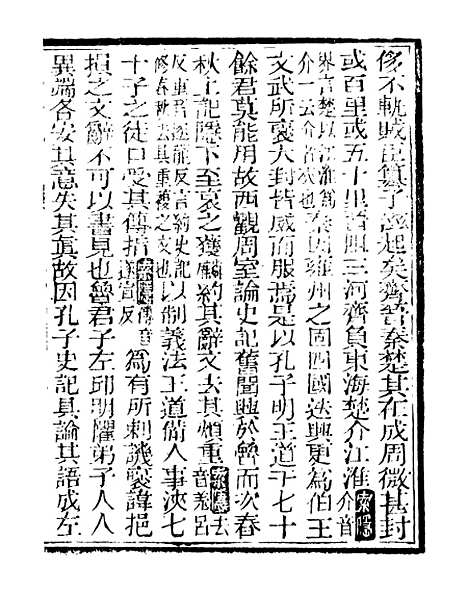 侈不軌賊臣篡子滋起矣齊晉秦楚其在成周微甚封
或百里或五十里晉阻三河齊負東海楚介江淮介音索隱
界言楚以江淮為
介一云介者夾也秦因雍州之固四國迭興更為伯王
文武所褒大封皆威而服焉是以孔子明王道干七十
餘君莫能用故西觀周室論史記舊聞興於魯而次春
秋上記隱下至哀之獲麟約其辭文去其煩重索隱去
音羌呂
反重音逐龍反言約史記
修春秋去其重複之文也以制義法王道備人事浹七
十子之徒口受其傳指索隱傳音
逐宣反為有所刺譏褒諱挹
損之文辭不可以書見也魯君子左邱明懼弟子人人
異端各安其意失其真故因孔子史記具論其語成左